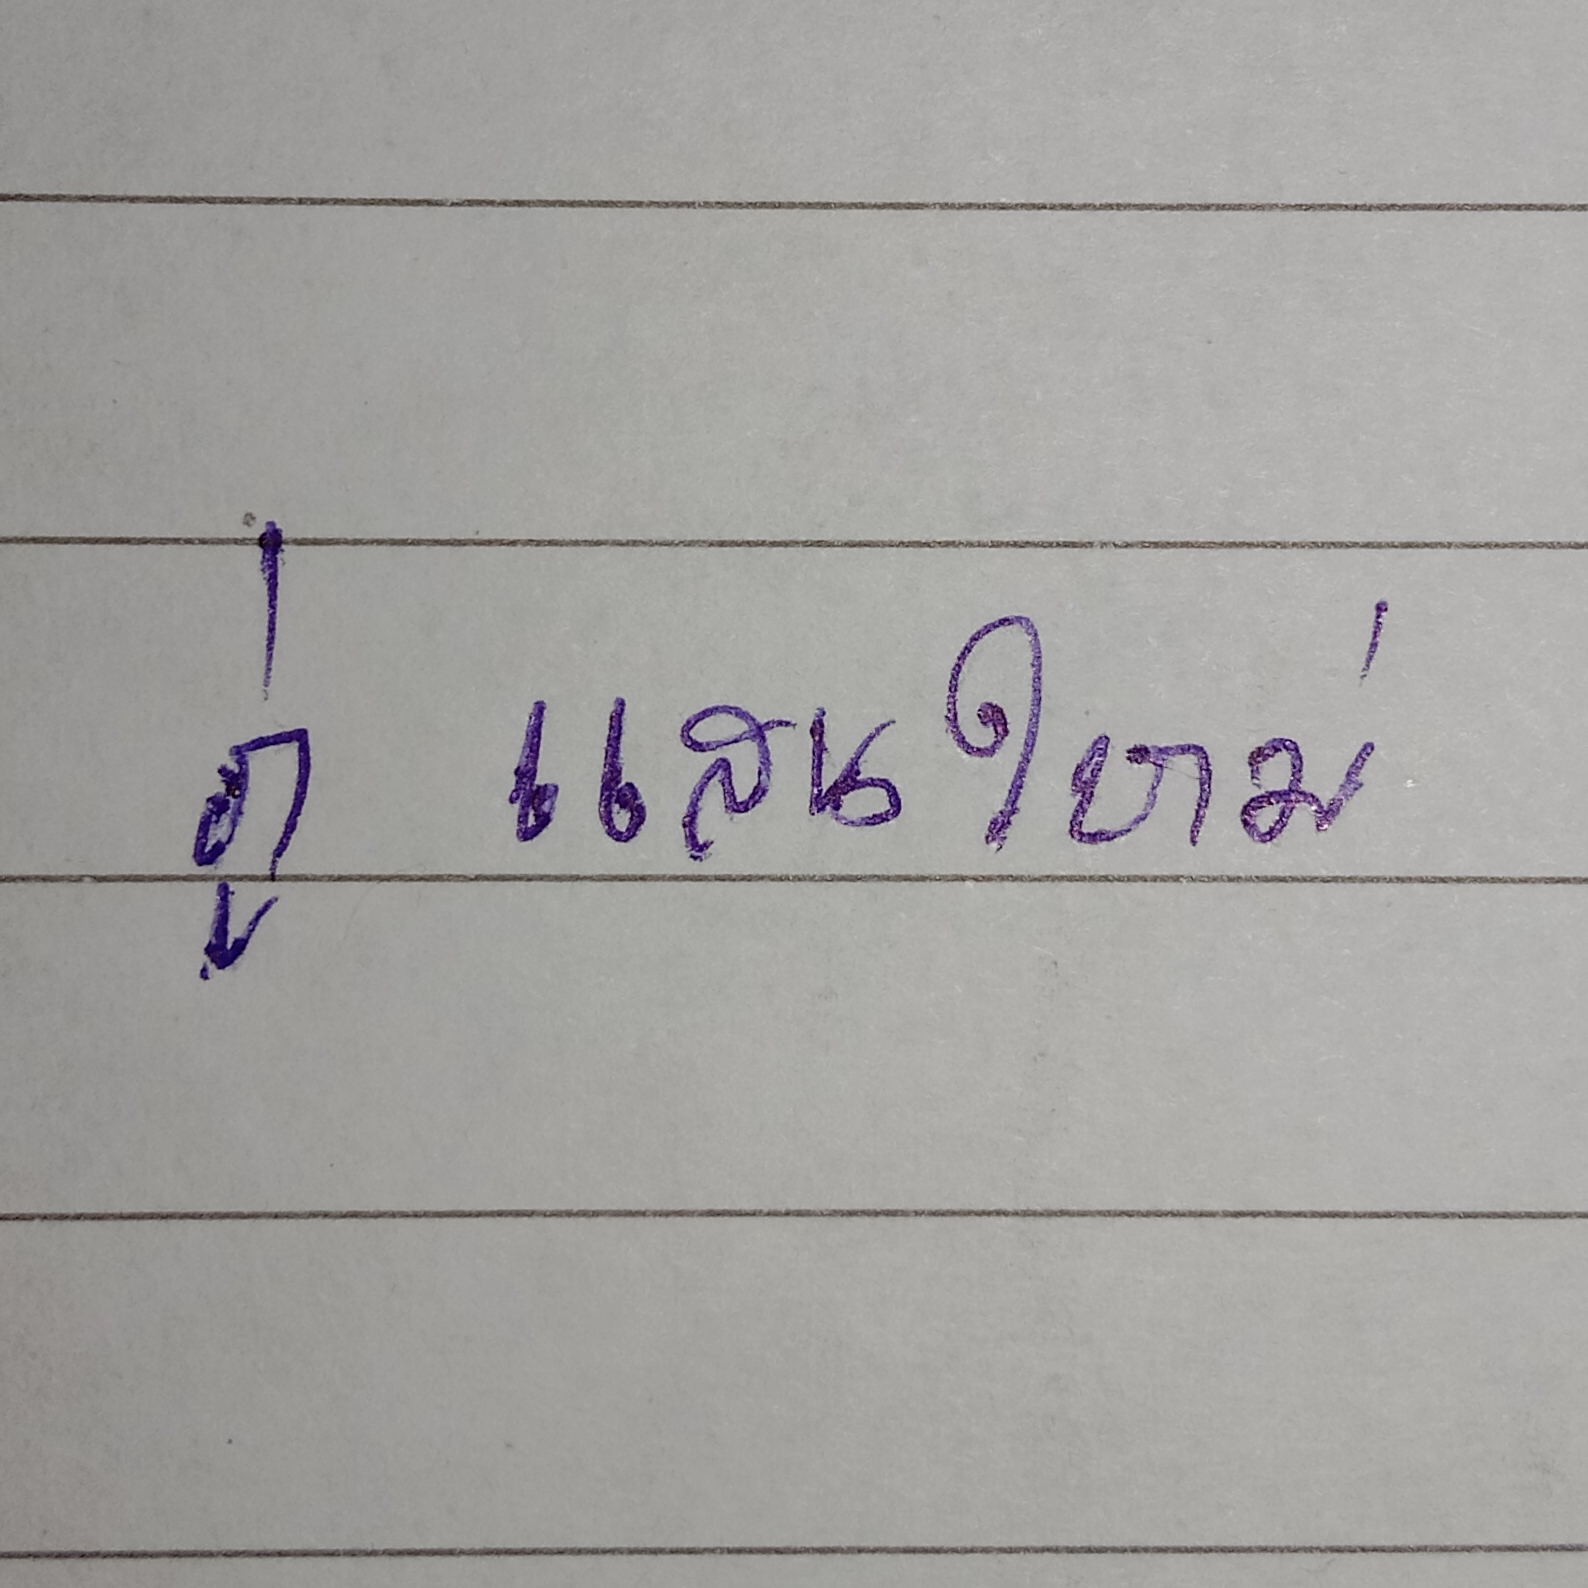 คู่ แสนใหม่